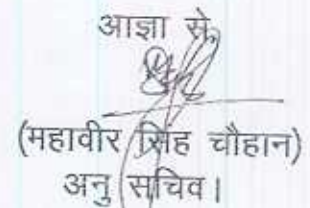 आज्ञा से,
(महावीर सिंह चौहान)
अनु सचिव।